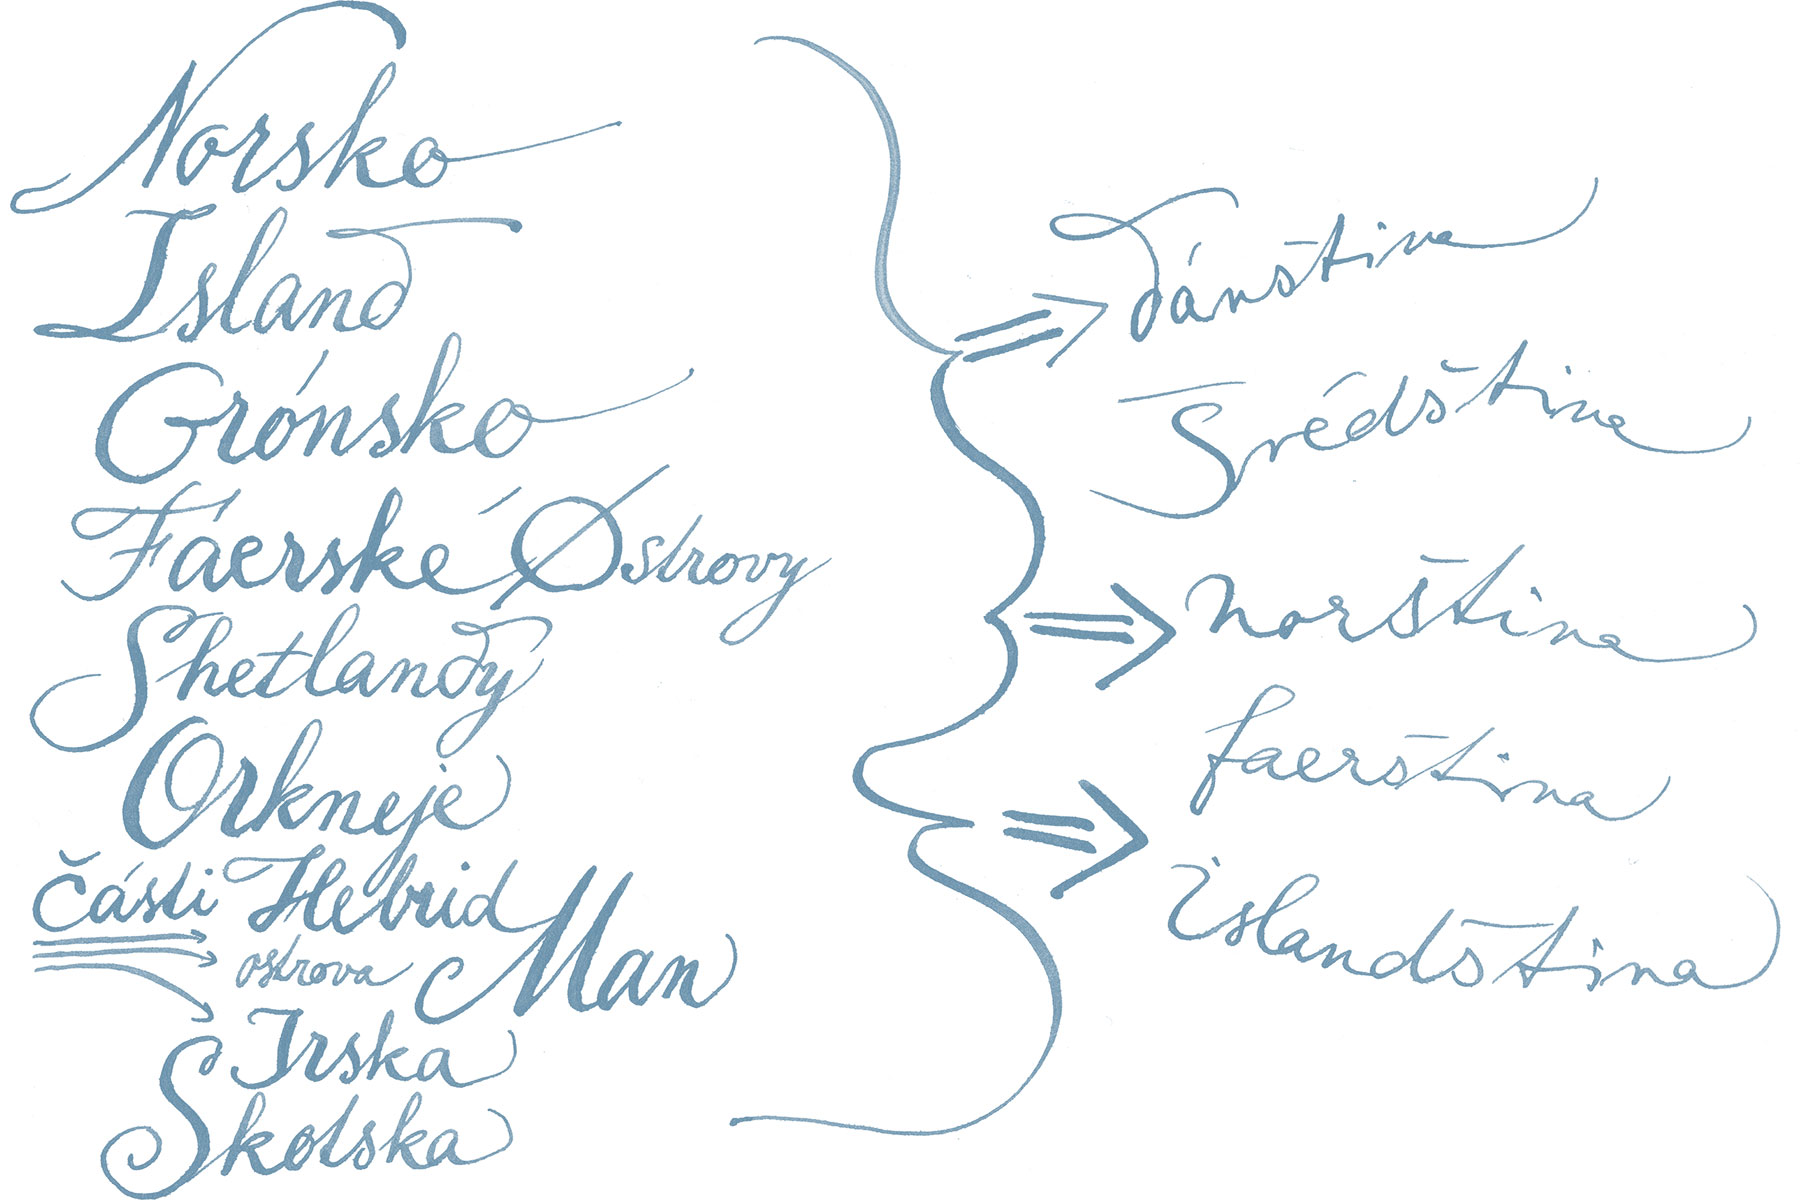 Norsko
Island
Grónsko
Fáerské Østrovy
Shetlandy
Orkneje
části Hebrid
ostrova Man
Irska
Skotska
dánština
Švédština
norština
faerština
islandština